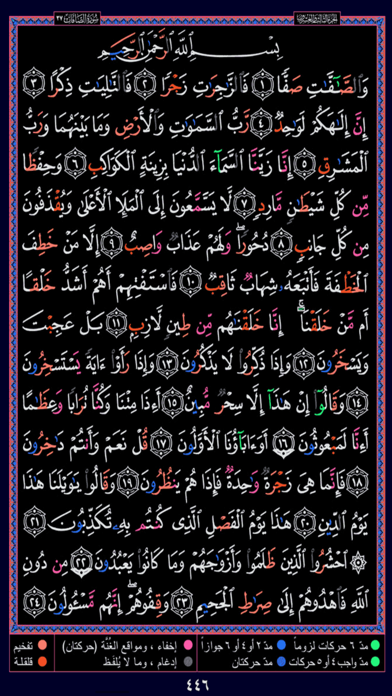 سورة الصافات ٣٧
الجزء الثالث والعشرون
بِسْمِ ٱللَّهِ ٱلرَّحْمَٰنِ ٱلرَّحِيمِ
وَٱلصَّٰٓفَّٰتِ صَفًّا ١ فَٱلزَّٰجِرَٰتِ زَجْرًا ٢ فَٱلتَّٰلِيَٰتِ ذِكْرًا ٣
إِنَّ إِلَٰهَكُمْ لَوَٰحِدٌ ٤ رَّبُّ ٱلسَّمَٰوَٰتِ وَٱلْأَرْضِ وَمَا بَيْنَهُمَا وَرَبُّ
ٱلْمَشَٰرِقِ ٥ إِنَّا زَيَّنَّا ٱلسَّمَآءَ ٱلدُّنْيَا بِزِينَةٍ ٱلْكَوَاكِبِ ٦ وَحِفْظًا
مِّن كُلِّ شَيْطَٰنٍ مَّارِدٍ ٧ لَّا يَسَّمَّعُونَ إِلَى ٱلْمَلَإِ ٱلْأَعْلَىٰ وَيُقْذَفُونَ
مِن كُلِّ جَانِبٍ ٨ دُحُورًا ۖ وَلَهُمْ عَذَابٌ وَاصِبٌ ٩ إِلَّا مَنْ خَطِفَ
ٱلْخَطْفَةَ فَأَتْبَعَهُۥ شِهَابٌ ثَاقِبٌ ١٠ فَٱسْتَفْتِهِمْ أَهُمْ أَشَدُّ خَلْقًا
أَم مَّنْ خَلَقْنَآ ۚ إِنَّا خَلَقْنَٰهُم مِّن طِينٍ لَّازِبٍ ١١ بَلْ عَجِبْتَ
وَيَسْخَرُونَ ١٢ وَإِذَا ذُكِّرُوا۟ لَا يَذْكُرُونَ ١٣ وَإِذَا رَأَوْا۟ ءَايَةً يَسْتَسْخِرُونَ
١٤ وَقَالُوٓا۟ إِنْ هَٰذَآ إِلَّا سِحْرٌ مُّبِينٌ ١٥ أَءِذَا مِتْنَا وَكُنَّا تُرَابًا وَعِظَٰمًا
أَءِنَّا لَمَبْعُوثُونَ ١٦ أَوَءَابَآؤُنَا ٱلْأَوَّلُونَ ١٧ قُلْ نَعَمْ وَأَنتُمْ دَٰخِرُونَ
١٨ فَإِنَّمَا هِىَ زَجْرَةٌ وَٰحِدَةٌ فَإِذَا هُمْ يَنظُرُونَ ١٩ وَقَالُوا۟ يَٰوَيْلَنَا هَٰذَا
يَوْمُ ٱلدِّينِ ٢٠ هَٰذَا يَوْمُ ٱلْفَصْلِ ٱلَّذِى كُنتُم بِهِۦ تُكَذِّبُونَ ٢١
۞ ٱحْشُرُوا۟ ٱلَّذِينَ ظَلَمُوا۟ وَأَزْوَٰجَهُمْ وَمَا كَانُوا۟ يَعْبُدُونَ ٢٢ مِن دُونِ
ٱللَّهِ فَٱهْدُوهُمْ إِلَىٰ صِرَٰطِ ٱلْجَحِيمِ ٢٣ وَقِفُوهُمْ ۖ إِنَّهُم مَّسْـُٔولُونَ ٢٤
مدّ ٦ حركات لزوماً مدّ ٢ أو ٤ أو ٦ جوازاً إخفاء ، ومواقع الغُنَّة (حركتان) تفخيم
مدّ واجب ٤ أو ٥ حركات مدّ حركتان إدغام ، وما لا يُلفَظ قلقلة
٤٤٦